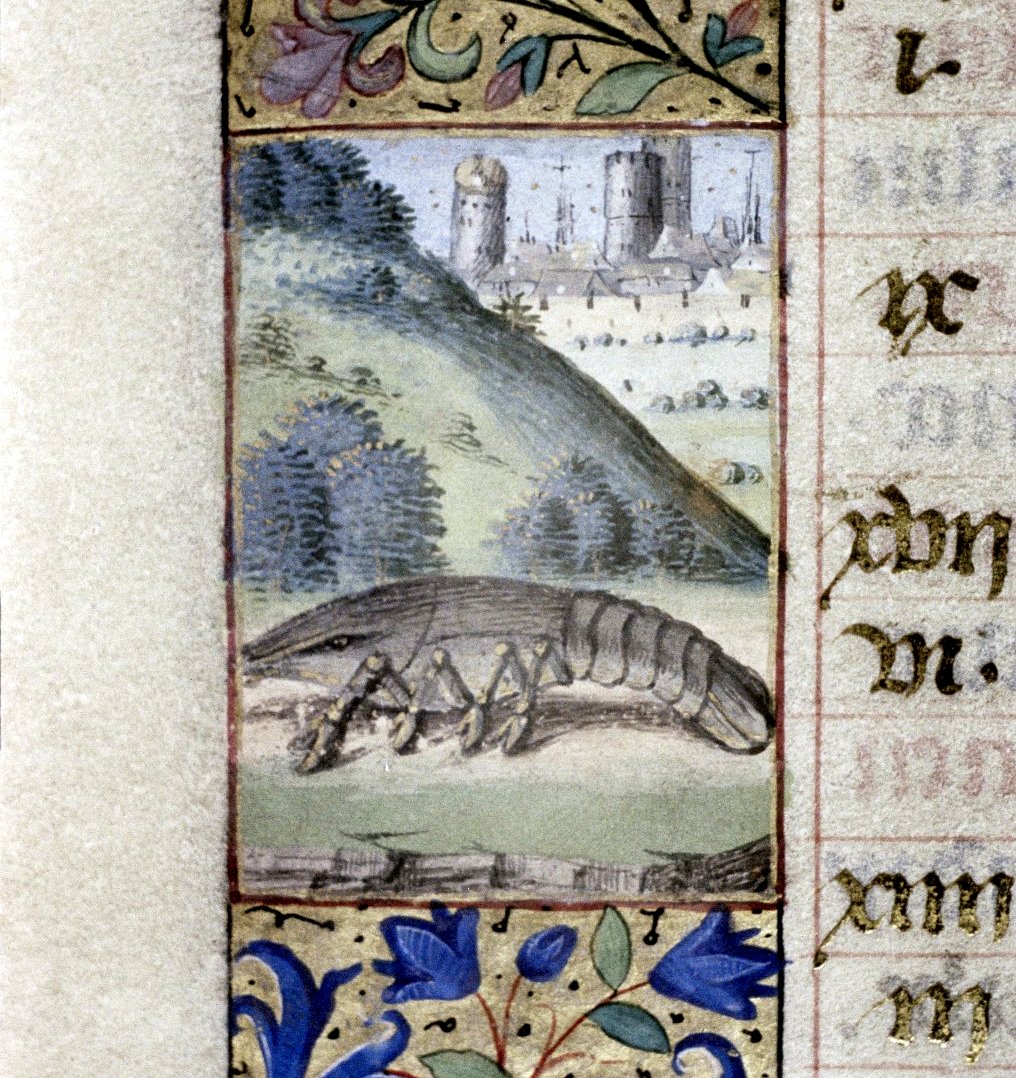 i
ix
xvii
vi.
xiiii
iii